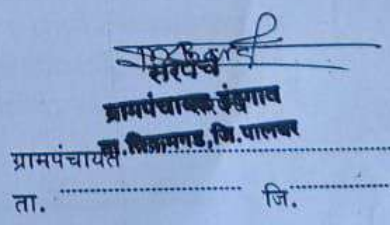 सरपंच
ग्रामपंचायत इंद्रगाव
ता.विक्रमगड,जि.पालघर
ग्रामपंचायत
ता. जि.